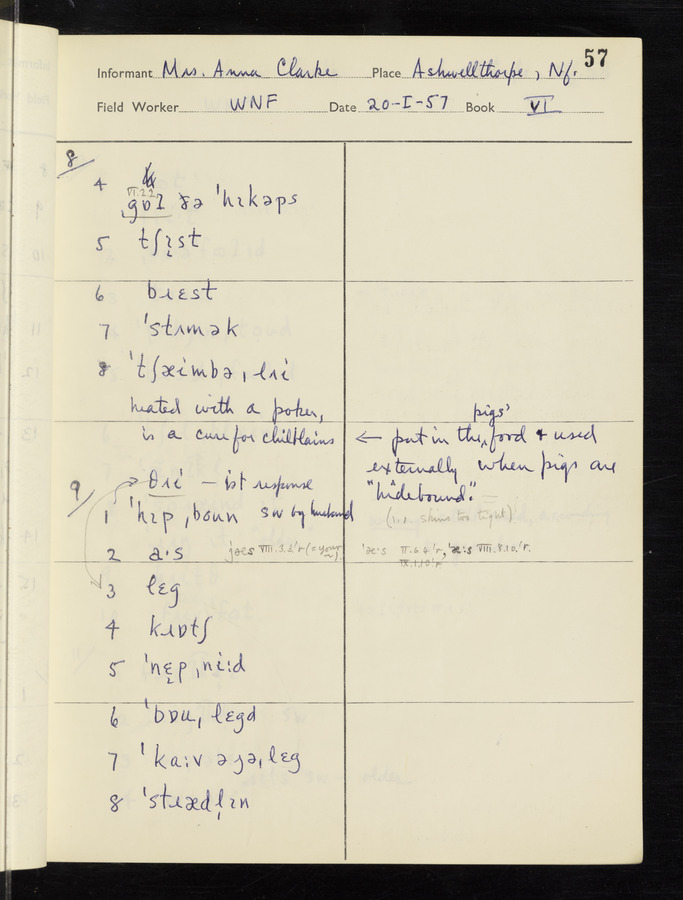 57
Informant Mrs. Anna Clarke Place Ashwellthorpe, Nf.
Field Worker WNF Date 20-I-57 Book VI
8/
VI.2.2
4 ˌgɒt ðə ˈhɪkəps
5 tʃɪ̞st
6 bɹɛst
7 ˈstʌmək
8 ˈtʃæimbəˌlɹi
heated with a poker,
is a cure for chilblains
← put in the pigs' food & used
externally when pigs are
"hidebound."
(i.e. skins too tight)
9/
θɹi – 1st response
1 ˈhɪpˌboun sw by husband
2 a·s jaes VIII.3.3'r (= your ~) ˈæ·s II.6.4'r, ˈæ:s VIII.8.10.'r.
IX.1.10'r
3 lɛg
4 kɹɒtʃ
5 ˈnɛ̞pˌni:d
6 ˈbɒuˌlɛgd
7 ˈka:v əɟəˌlɛg
8 ˈstɹædˌlɪn